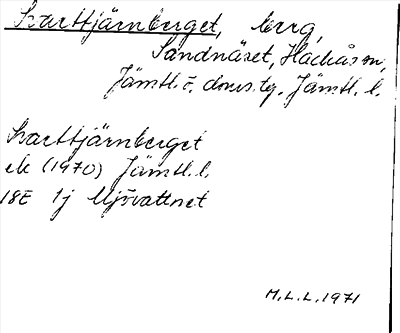 Svarttjärnberget, berg,
Sandnäset, Hackås sn,
Jämtl. ö. doms.tg. Jämtl. l.
Svarttjärnberget
ek (1970) Jämtl. l.
18E 1j Mjövattnet
M.L.L. 1971